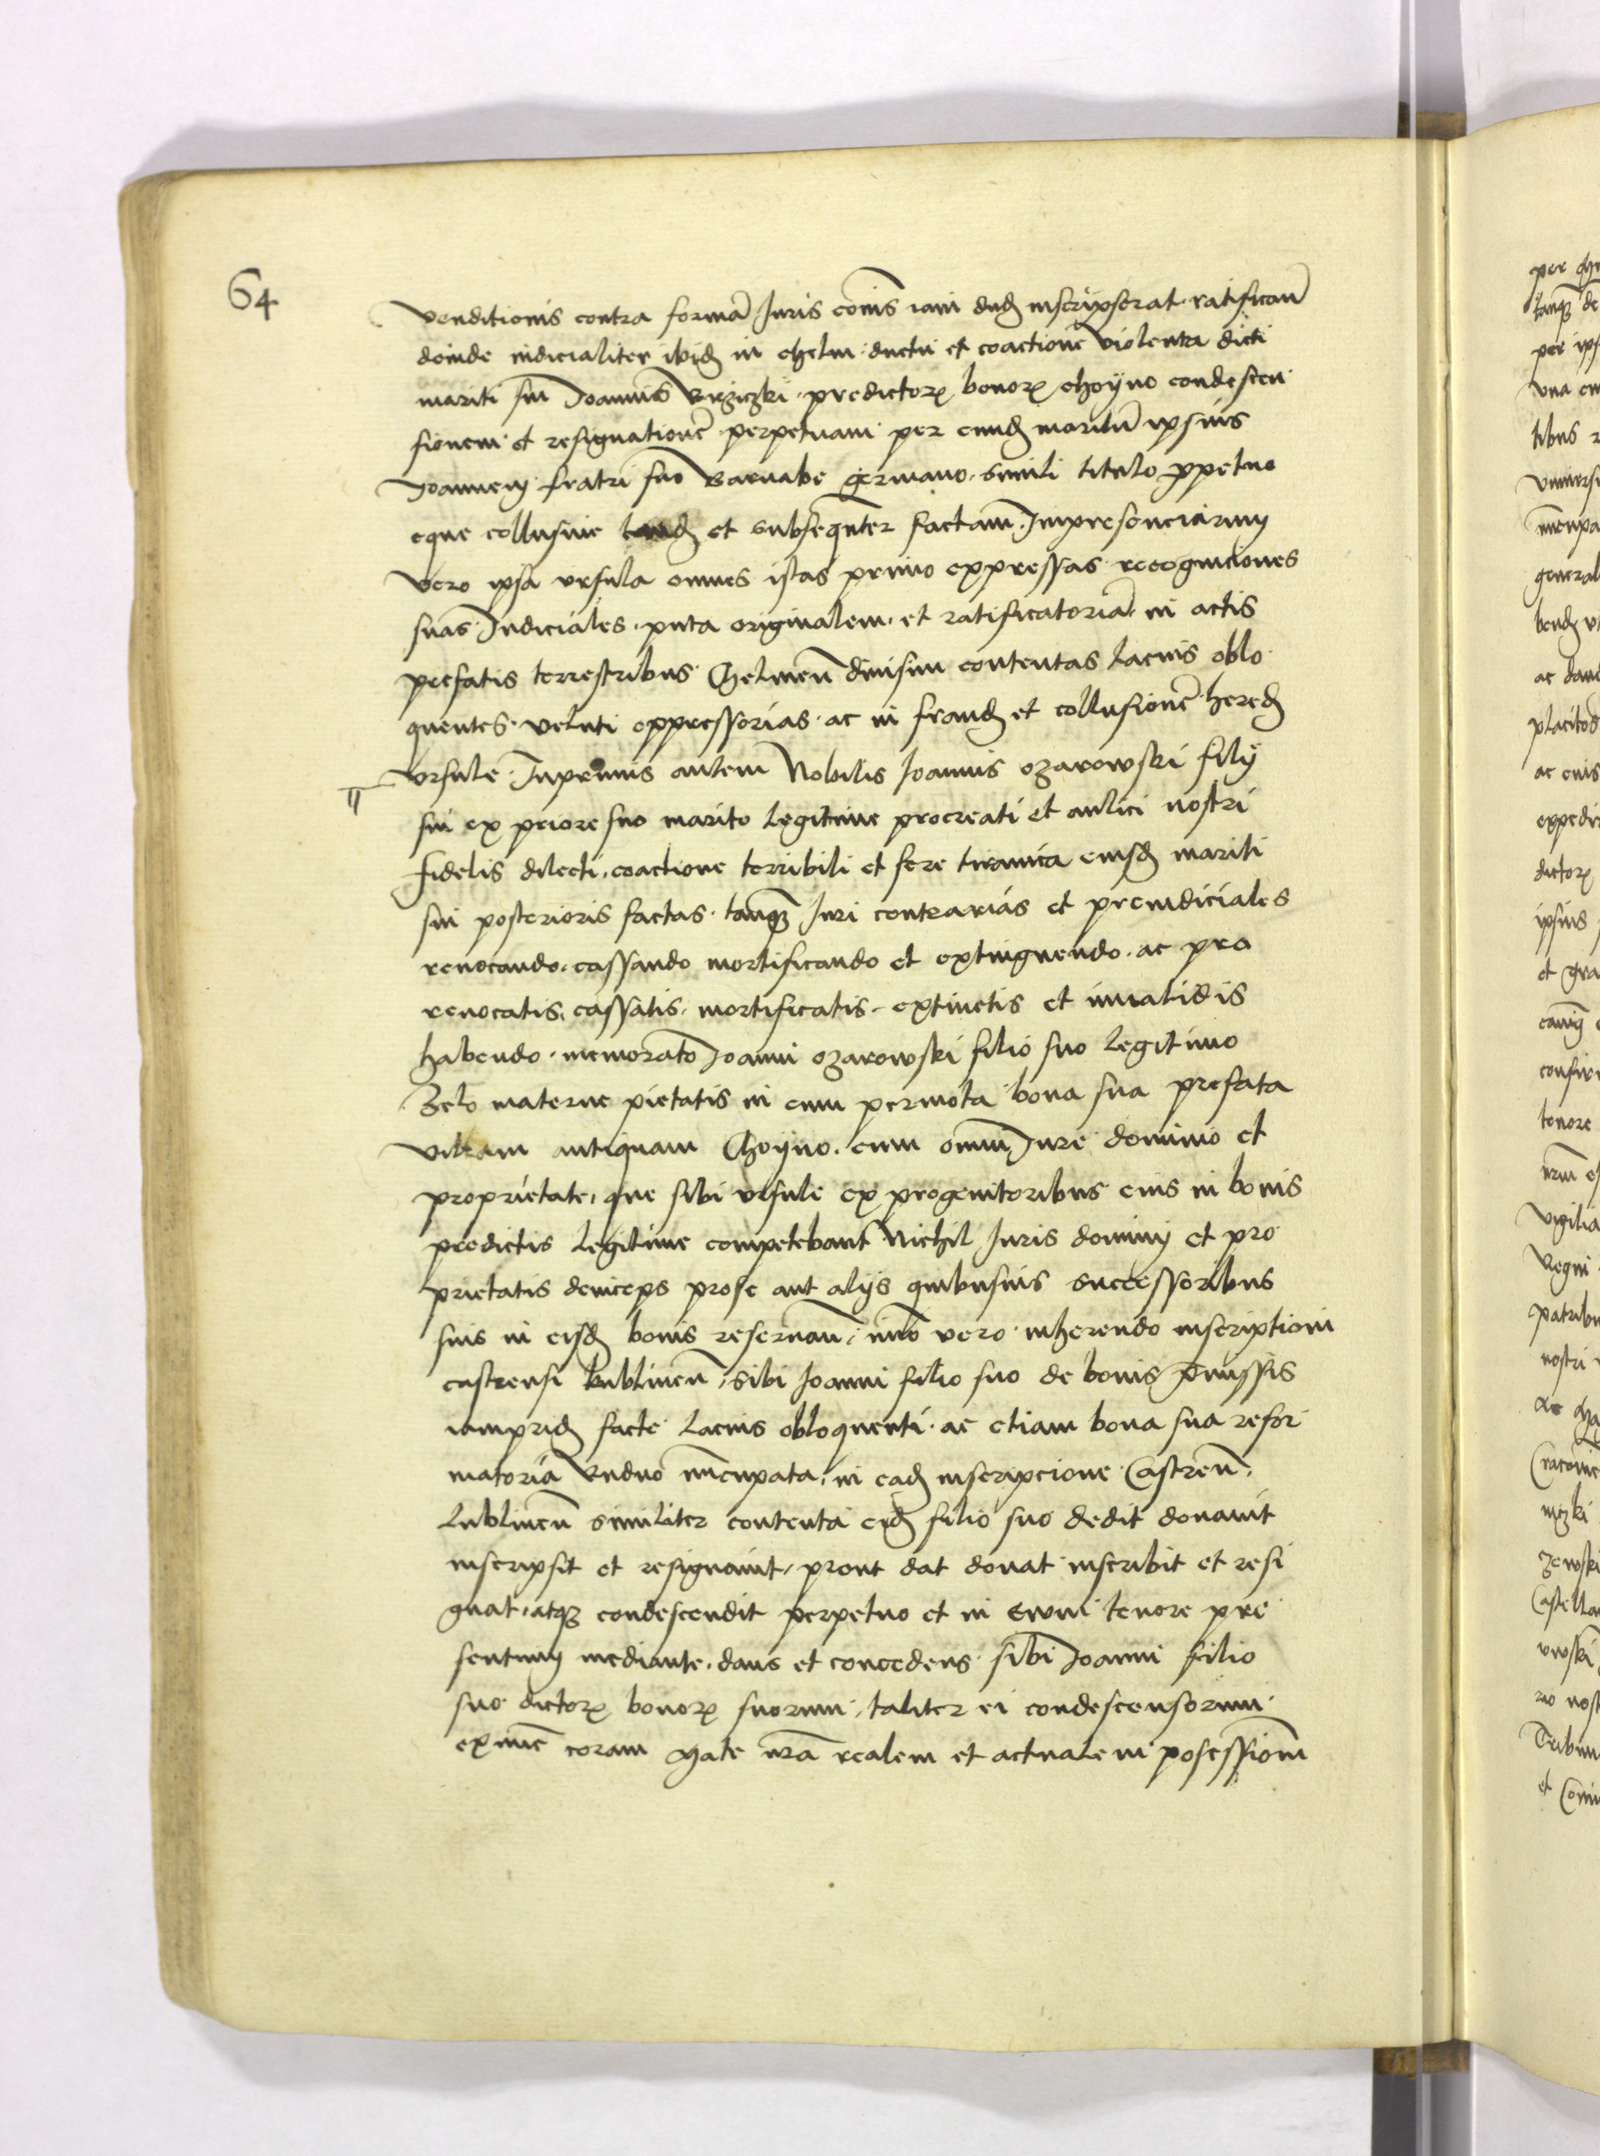 64
venditionis contra formā Juris cōnis iam dud inscripserat ratifican̄
deinde iudicialiter ibid in chelm ductu et coactione violenta dicti
mariti sui Joannis predictoꝝ bonoꝝ choyno condescen
sionem et resignationē perpetuam per eund maritū ipsius
Joannem fratri suo Barnabe germano simili titulo ppetuo
eque collusiue et subseqnter factam Impresenciarum
vero ipsa vrsula omnes istas primo expressas recogniciones
suas Judiciales puta originalem et ratificatoriā in actis
prefatis terrestribus Chelmen̄ diuisim contentas lacius oblo
quentes veluti oppressorias ac in fraud et collusionē hered
vrsule Inprimis autem Nobilis Joannis ozarowski filij
sui ex priore suo marito legitime procreati et aulici nostri
fidelis dilecti coactione terribili et fere tiranica eiusd mariti
sui posterioris factas tanqꝫ Juri contrarias et preiudiciales
reuocando cassando mortificando et extinguendo ac pro
reuocatis cassatis mortificatis extinctis et inualidis
habendo memorato Joanni ozarowski filio suo legitimo
Zelo materne pietatis in eum permota bona sua prefata
villam antiquam Choyno cum omni Jure dominio et
proprietate que sibi vrsule ex progenitoribus eius in bonis
predictis legitime competebant Nichil Juris dominij et pro
prietatis deinceps prose aut alijs quibusuis successoribus
suis in eisd bonis reseruan̄ imo vero inherendo inscriptioni
castrensi lublinen̄ sibi Joanni filio suo de bonis p̄missis
iamprid facte lacius obloquenti ac etiam bona sua refor
matoria nūcupata in ead inscripcione Castren̄
lublinen̄ similiter contenta eid filio suo dedit donauit
inscripsit et resignauit prout dat donat inscribit et resi
gnat atqꝫ condescendit perpetuo et in euum tenore pre
sentium mediante dans et concedens sibi Joanni filio
suo dictoꝝ bonoꝝ suorum taliter ei condescensorum
exnūc coram Mate nr̄a realem et actualem posessionē